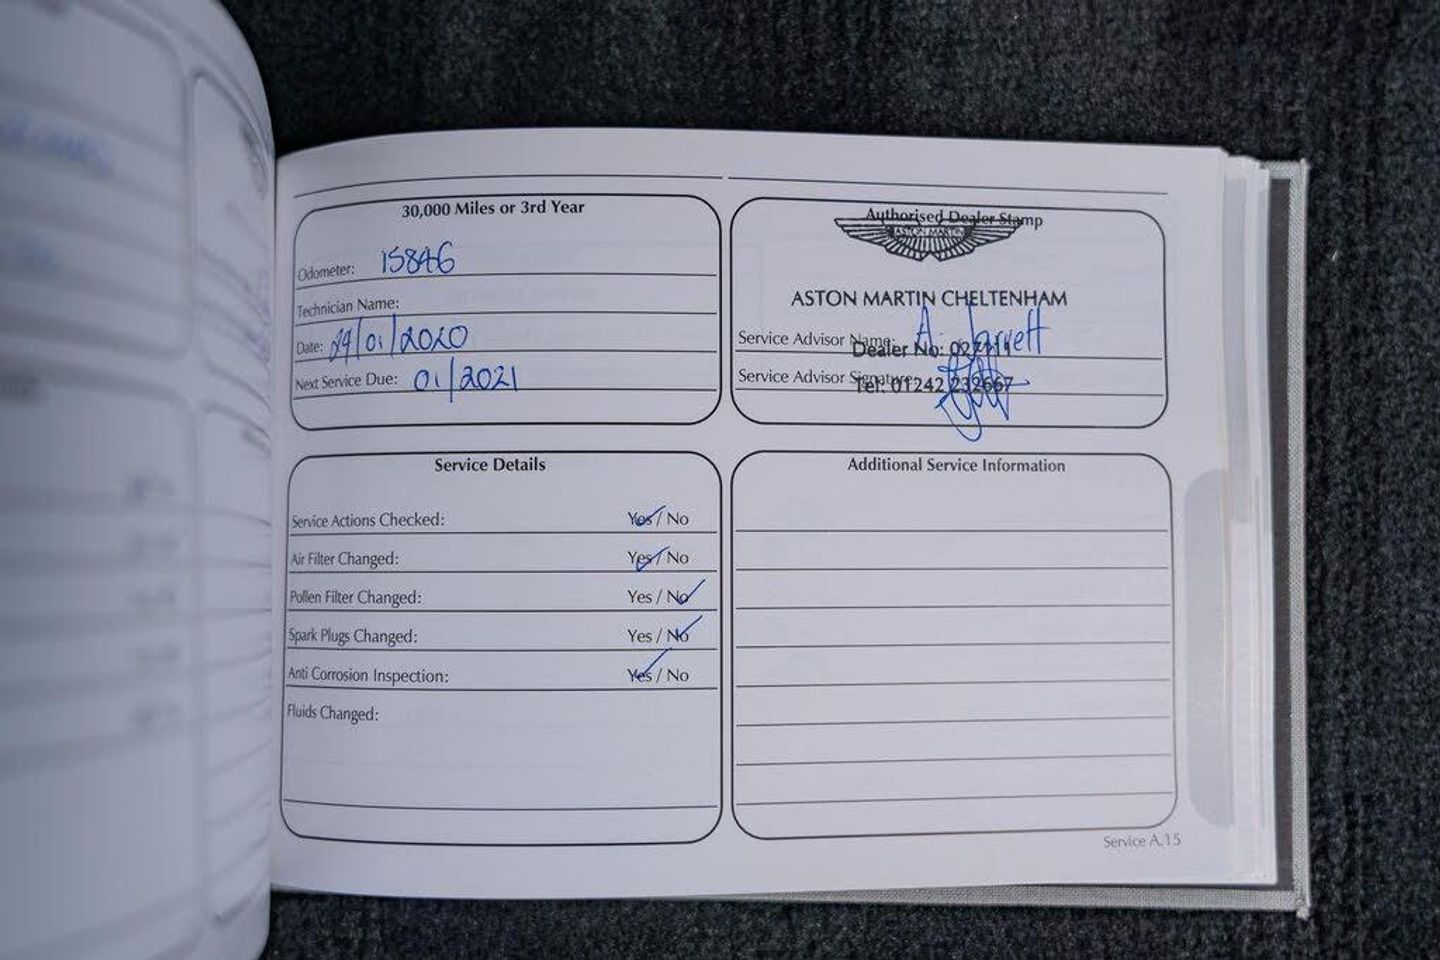 30,000 Miles or 3rd Year
Odometer: 15846
Technician Name:
Date: 29/01/2020
Next Service Due: 01/2021
Authorised Dealer Stamp
ASTON MARTIN
ASTON MARTIN CHELTENHAM
Service Advisor Name: A. Jarrett
Dealer No: 027111
Service Advisor Signature:
Tel: 01242 232667
Service Details
Service Actions Checked: Yes / No
Air Filter Changed: Yes / No
Pollen Filter Changed: Yes / No
Spark Plugs Changed: Yes / No
Anti Corrosion Inspection: Yes / No
Fluids Changed:
Additional Service Information
Service A.15